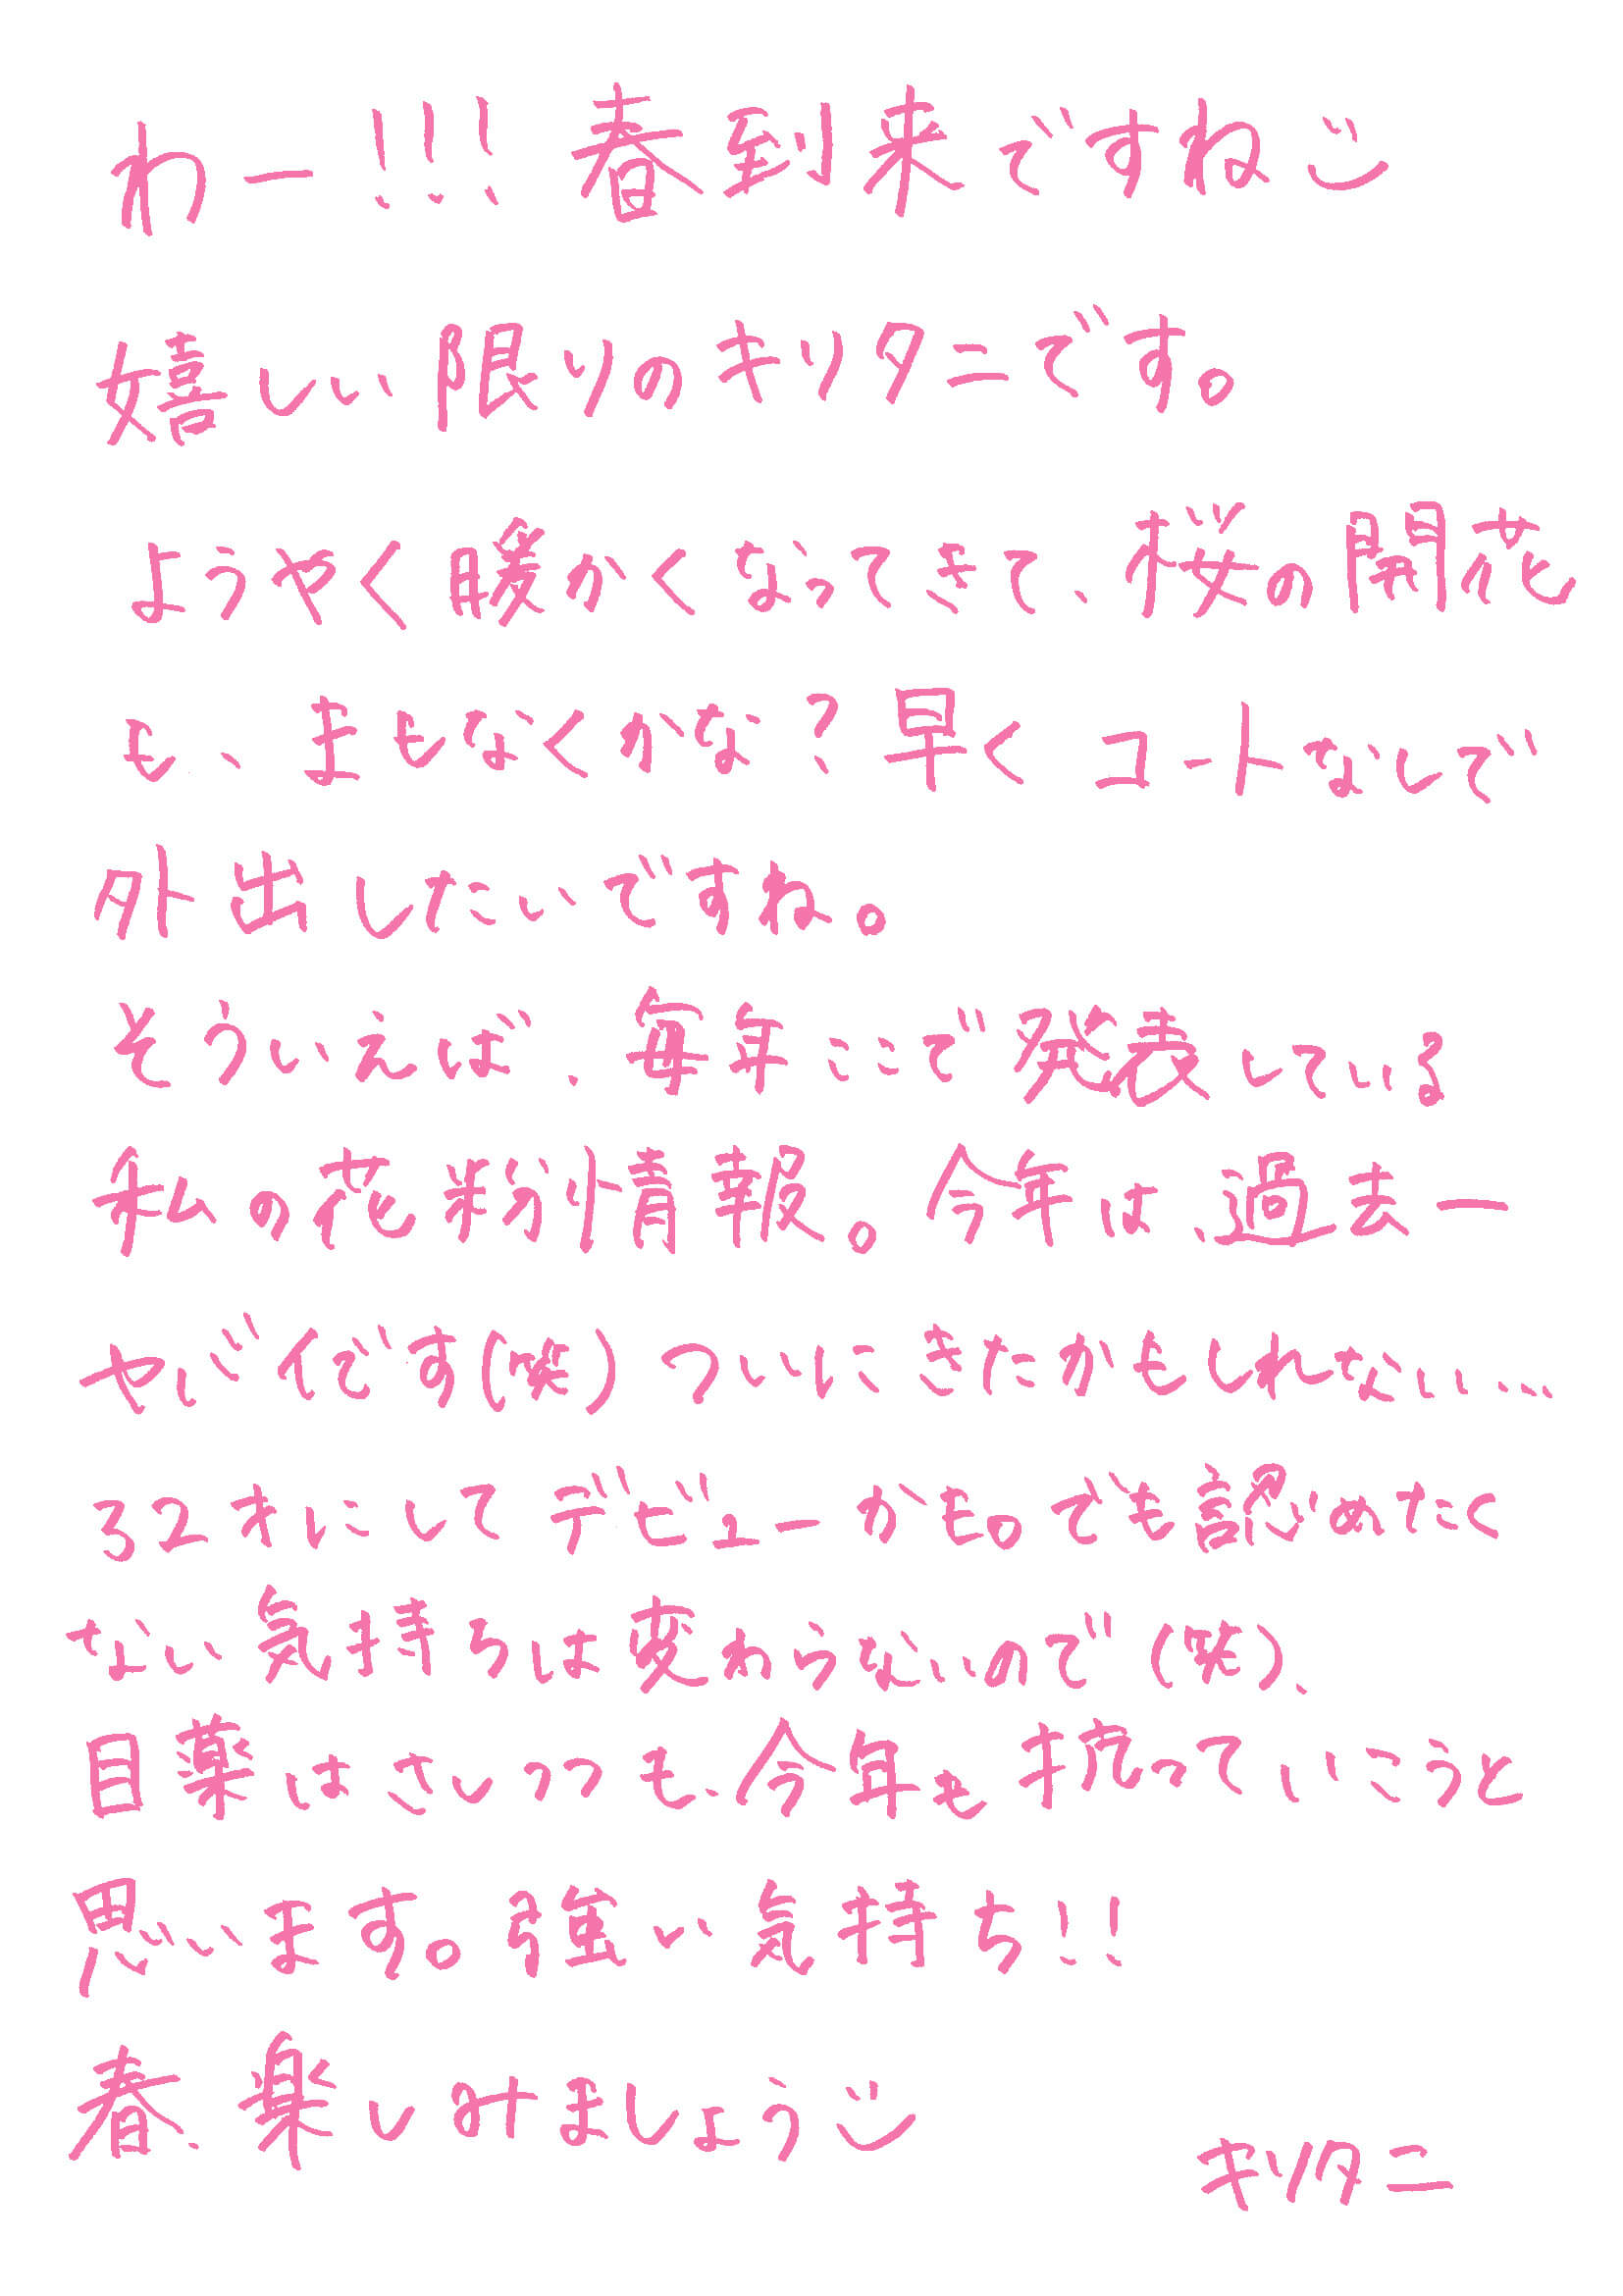 わー!!! 春到来ですね
嬉しい限りのキリタニです。
ようやく暖かくなってきて、桜の開花
も、まもなくかな? 早くコートなしで
外出したいですね。
そういえば、毎年ここで発表している
私の花粉情報。今年は、過去一
ヤバイです(笑) ついにきたかもしれない...
32才にしてデビューかも。でも認めたく
ない気持ちは変わらないので(笑)、
目薬はさしつつも、今年も抗っていこうと
思います。強い気持ち!!
春、楽しみましょう
キリタニ